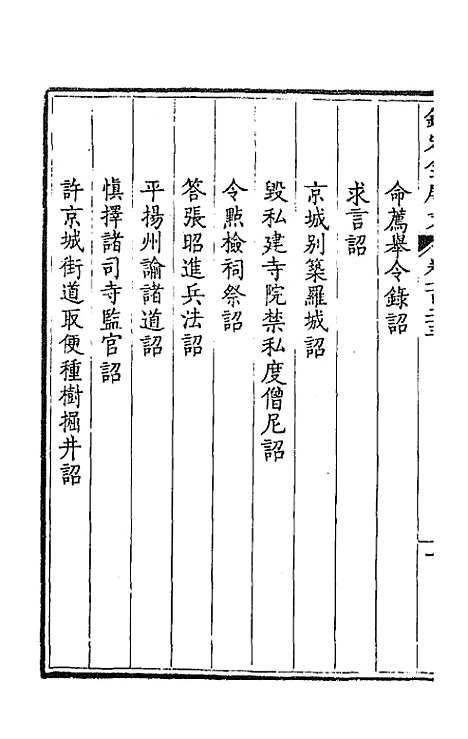 命薦舉令錄詔
求言詔
京城别築羅城詔
毀私建寺院禁私度僧尼詔
令㸃檢祠祭詔
答張昭進兵法詔
平揚州諭諸道詔
愼擇諸司寺監官詔
許京城街道取便種樹掘井詔